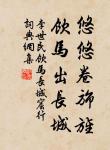 悠悠卷旆旌
飲馬出長城
李世民飲馬長城窟行
詞典網集